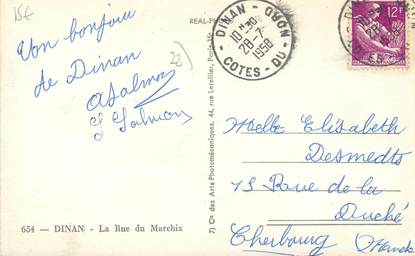 15€
Un bonjour
de Dinan
ASalmon
S Salmon
22)
654 — DINAN - La Rue du Marchix
7) Cie des Arts Photomécaniques, 44, rue Letellier, Paris
REAL-PH
DINAN - NORD
10 H 30
28-7
1958
COTES - DU -
12F
Melle Elisabeth
Desmedts
13 Rue de la
Duché
Cherbourg (Manche